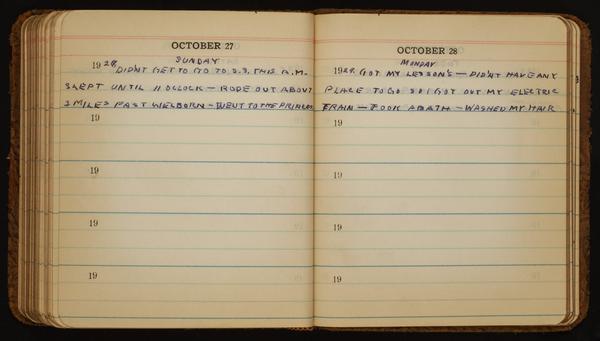 OCTOBER 27
SUNDAY
1929 DIDN'T GET TO GO TO S.S. THIS A.M.
SLEPT UNTIL 11 OCLOCK - RODE OUT ABOUT
3 MILES PAST WELBORN - WENT TO THE PRINCESS
19
19
19
19
OCTOBER 28
MONDAY
1929 GOT MY LESSON'S - DIDN'T HAVE ANY
PLACE TO GO SO I GOT OUT MY ELECTRIC
TRAIN - TOOK A BATH - WASHED MY HAIR
19
19
19
19